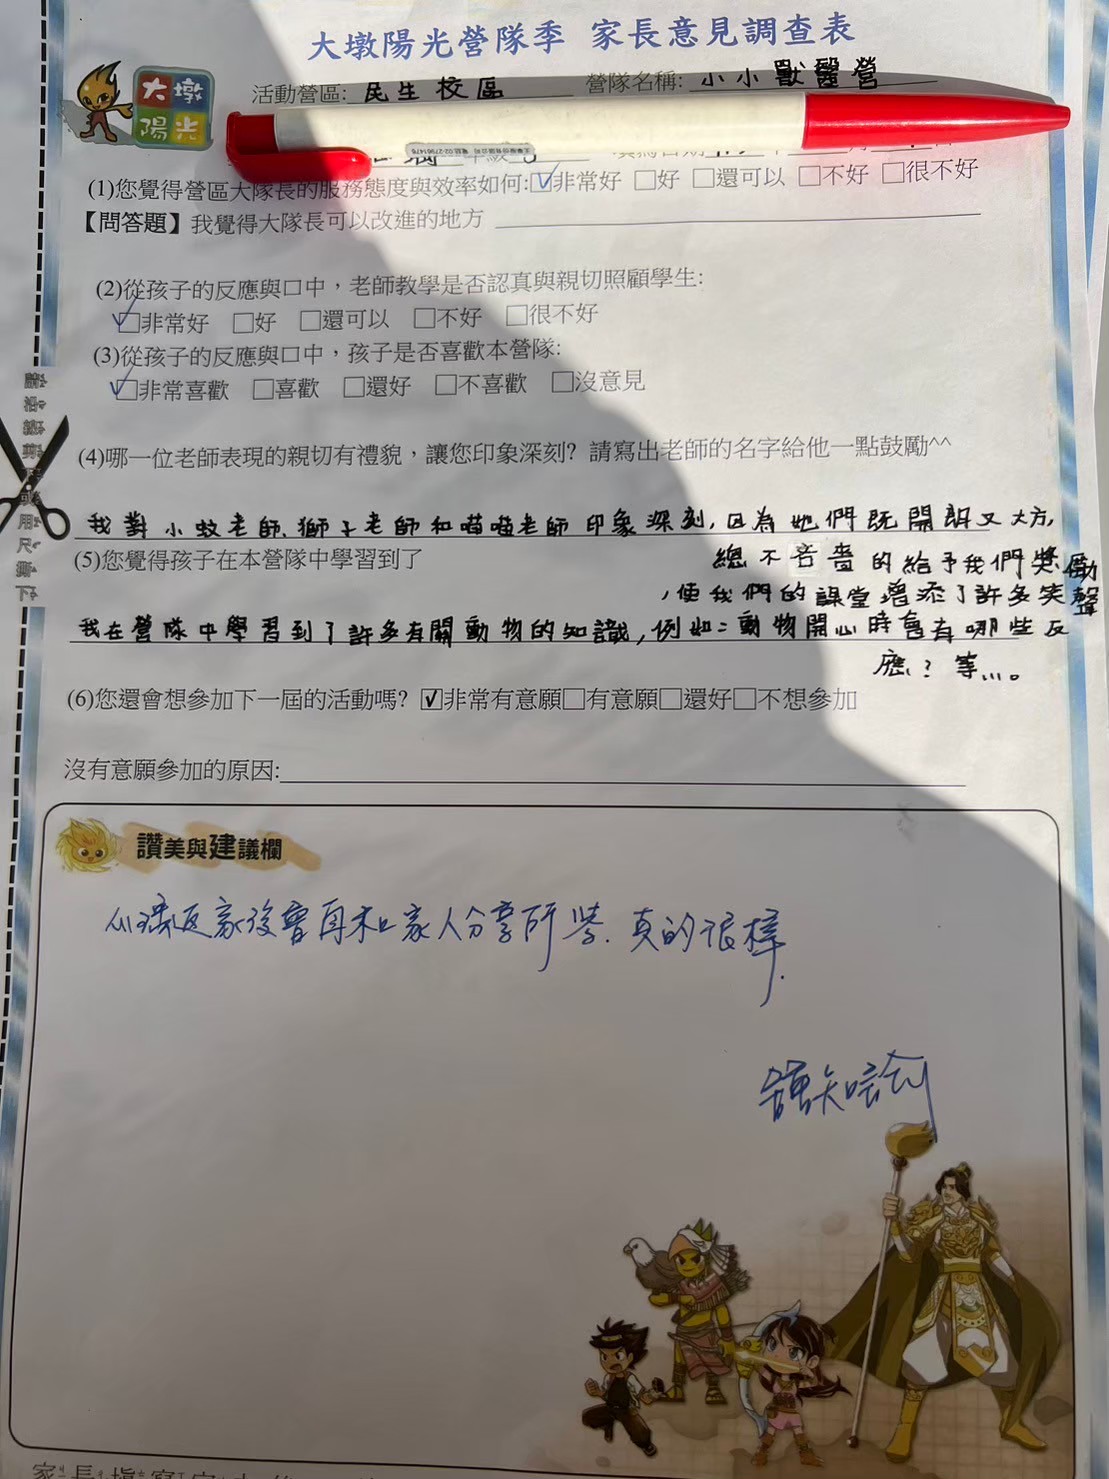 大墩陽光營隊季 家長意見調查表
大墩
陽光
活動營區: 民生校區 營隊名稱: 小小獸醫營
(1)您覺得營區大隊長的服務態度與效率如何:☑非常好 □好 □還可以 □不好 □很不好
【問答題】我覺得大隊長可以改進的地方
(2)從孩子的反應與口中，老師教學是否認真與親切照顧學生:
☑非常好 □好 □還可以 □不好 □很不好
(3)從孩子的反應與口中，孩子是否喜歡本營隊:
☑非常喜歡 □喜歡 □還好 □不喜歡 □沒意見
(4)哪一位老師表現的親切有禮貌，讓您印象深刻? 請寫出老師的名字給他一點鼓勵^^
我對小蚊老師、獅子老師和喵喵老師印象深刻，因為她們既開朗又大方，
總不吝嗇的給予我們獎勵
，使我們的課堂增添了許多笑聲
(5)您覺得孩子在本營隊中學習到了
我在營隊中學習到了許多有關動物的知識，例如：動物開心時會有哪些反
應？等…。
(6)您還會想參加下一屆的活動嗎? ☑非常有意願□有意願□還好□不想參加
沒有意願參加的原因:
讚美與建議欄
返家後會再和家人分享所學. 真的很棒.